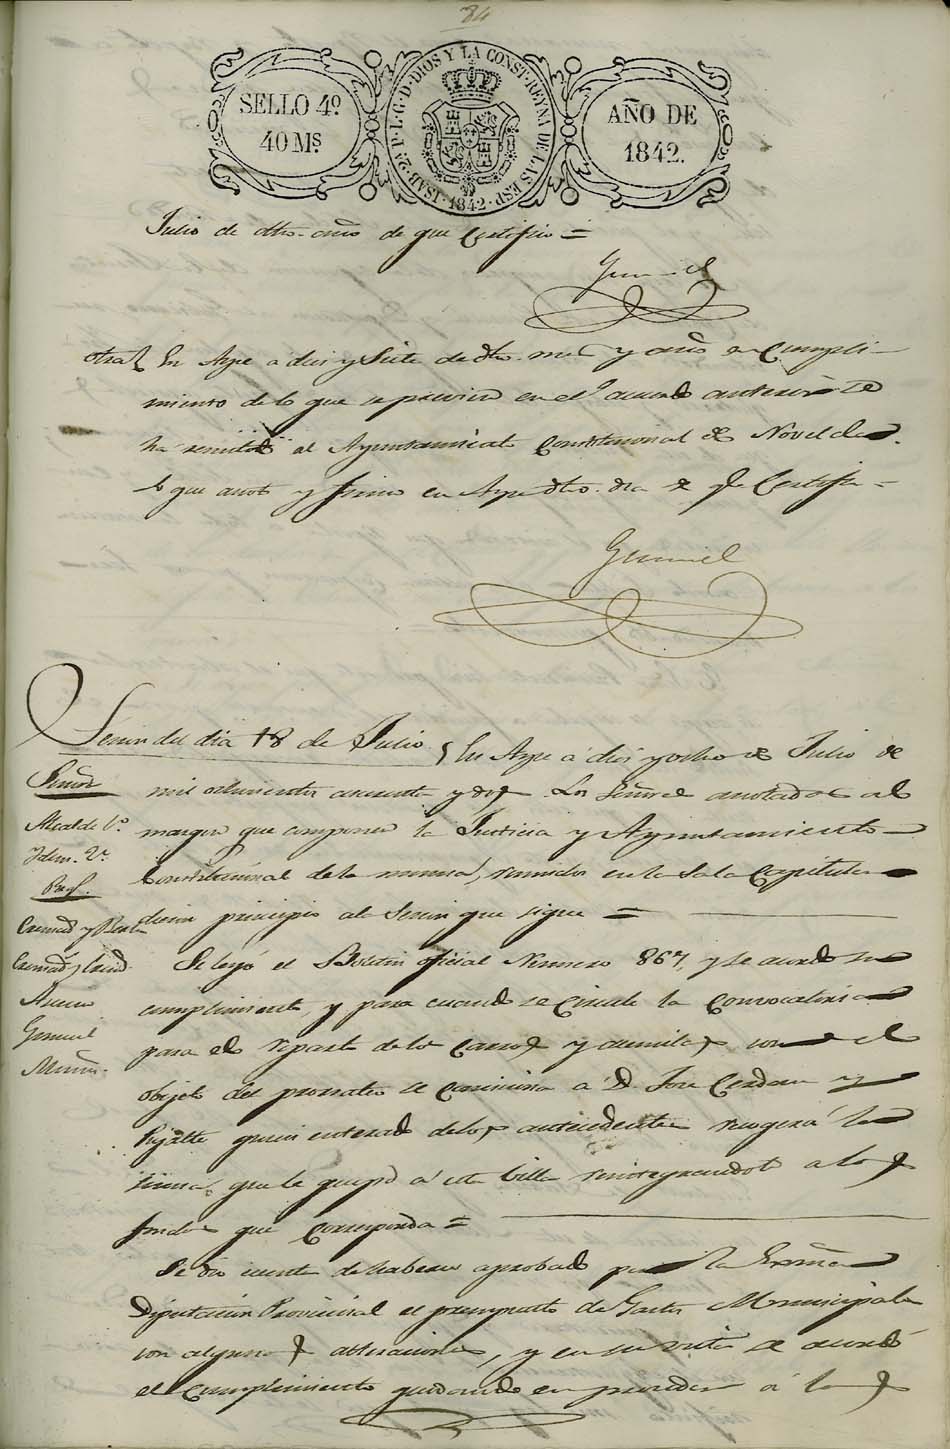 84
SELLO 4º
40 Ms.
ISAB. 2ª P. L. G. D. DIOS Y LA CONST. REYNA DE LAS ESP.
1842
AÑO DE
1842.
Julio de dho. año de que Certifico =
Gumiel
otra} En Aspe a diez y Siete de dho. mes y año en Cumpli-
miento de lo que se previene en el acuerdo anterior se
ha remitido al Ayuntamiento Constitucional de Novelda
lo que anoto y firmo en Aspe dho. dia de q.e Certifico =
Gumiel
Sesion del dia 18 de Julio } En Aspe a dies y ocho de Julio de
mil ochocientos cuarenta y dos Los Señores anotados al
margen que componen la Justicia y Ayuntamiento
Constitucional de la misma, reunidos en la Sala Capitular
dieron principio a la Sesion que sigue =
Señores
Alcalde 1º.
Idem. 2º.
Cremad.s y
Cremad.s y
Asencio
Gumiel
Se leyó el Boletin oficial Numero 867, y se acordó su
cumplimiento y para cuando se Circule la Convocatoria
para el reparto de los Carros y acemilas con el
objeto del prorrateo se comisiona á D. Jose Cerdan y
Pujalte quien enterado de los antecedentes recogerá la
suma que le quepa á esta Villa reintegrandolo a los
fondos que corresponda =
Se dio cuenta de haberse aprobado por la Exma
Diputacion Provincial el presupuesto de Gastos Municipales
con algunas alteraciones, y en su vista se acordó
el cumplimiento quedando en proceder á las